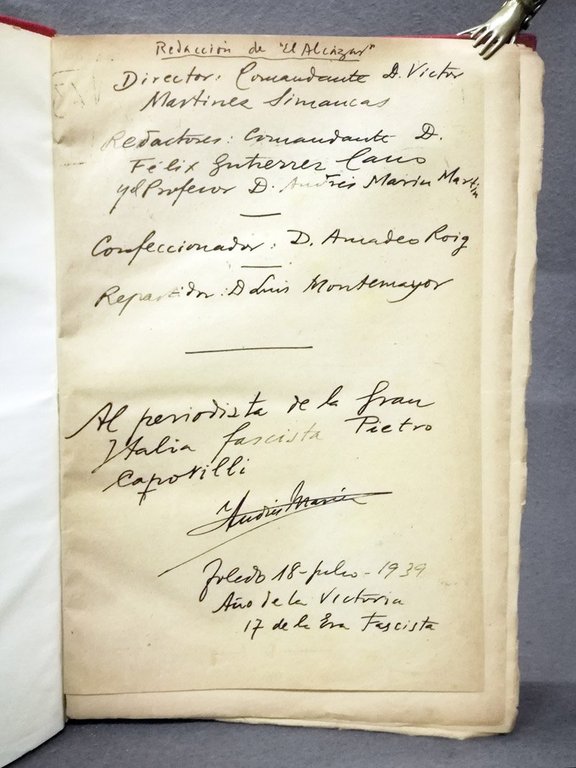 Redacción de "El Alcázar"
Director: Comandante D. Victor
Martinez Simancas
Redactores: Comandante D.
Félix Gutierrez Cano
y el Profesor D. Andrés Marin Martin
Confeccionador: D. Amadeo Roig
Repartidor: D Luis Montemayor
Al periodista de la Gran
Italia fascista Pietro
Capovilli
Andrés Marin
Toledo 18-Julio-1939
Año de la Victoria
17 de la Era Fascista